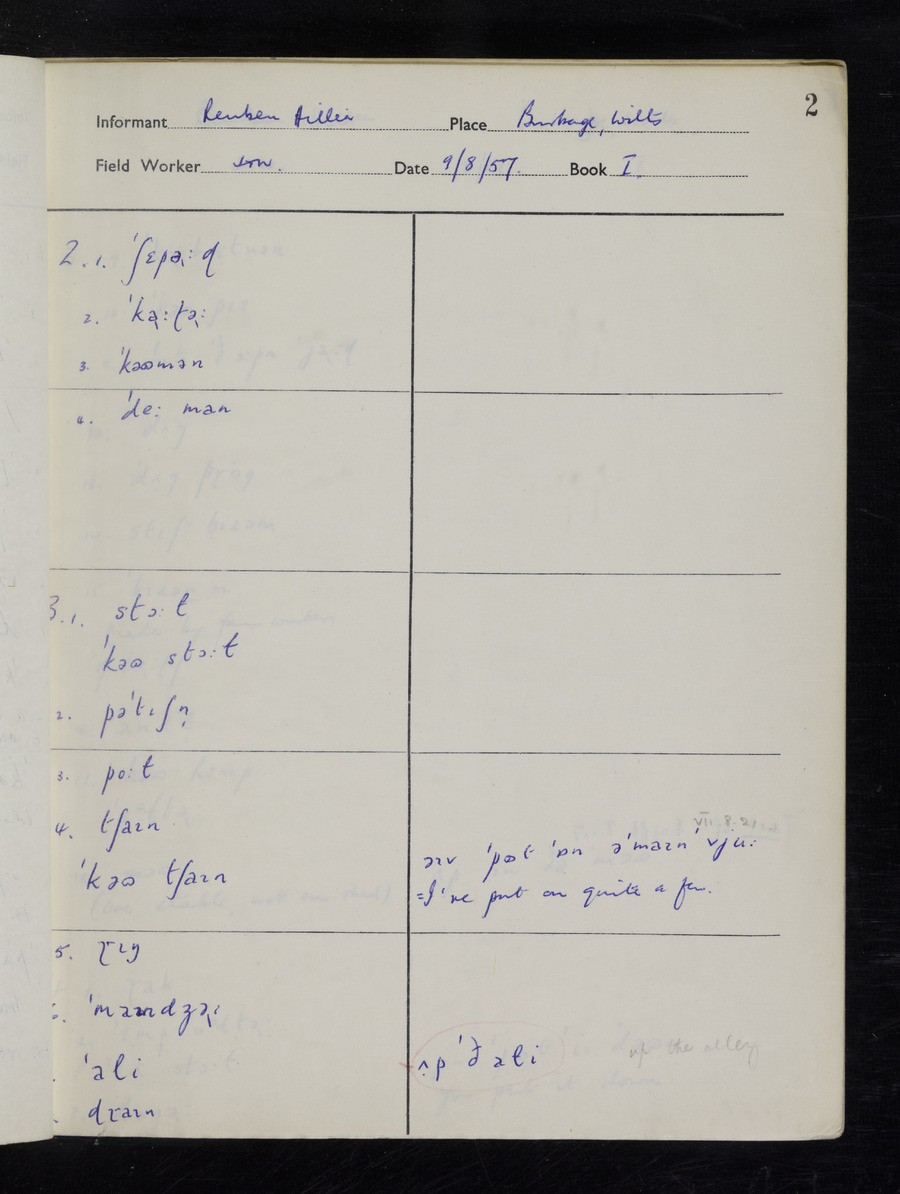 2
Informant Reuben Hillier Place Burbage, Wilts
Field Worker Date 9/8/57. Book I.
2. 1. ˈʃɛpəɻːd
2. ˈkaɻːʈəɻː
3. ˈkəʊmən
4. ˈdeː man
3. 1. stɔːt
ˈkəʊ stɔːt
2. pəˈtɪʃn̩
3. poːt
4. tʃaɪn
ˈkəʊ tʃaɪn
VIII.8.21
əɪv ˈpʊt ˈɒn əˈmaɪn ˈvjuː
=I've put on quite a few.
5.
ˈali
ʌp ˈð ali
up the alley